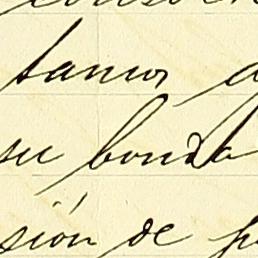 tamos
su bonda
sión de